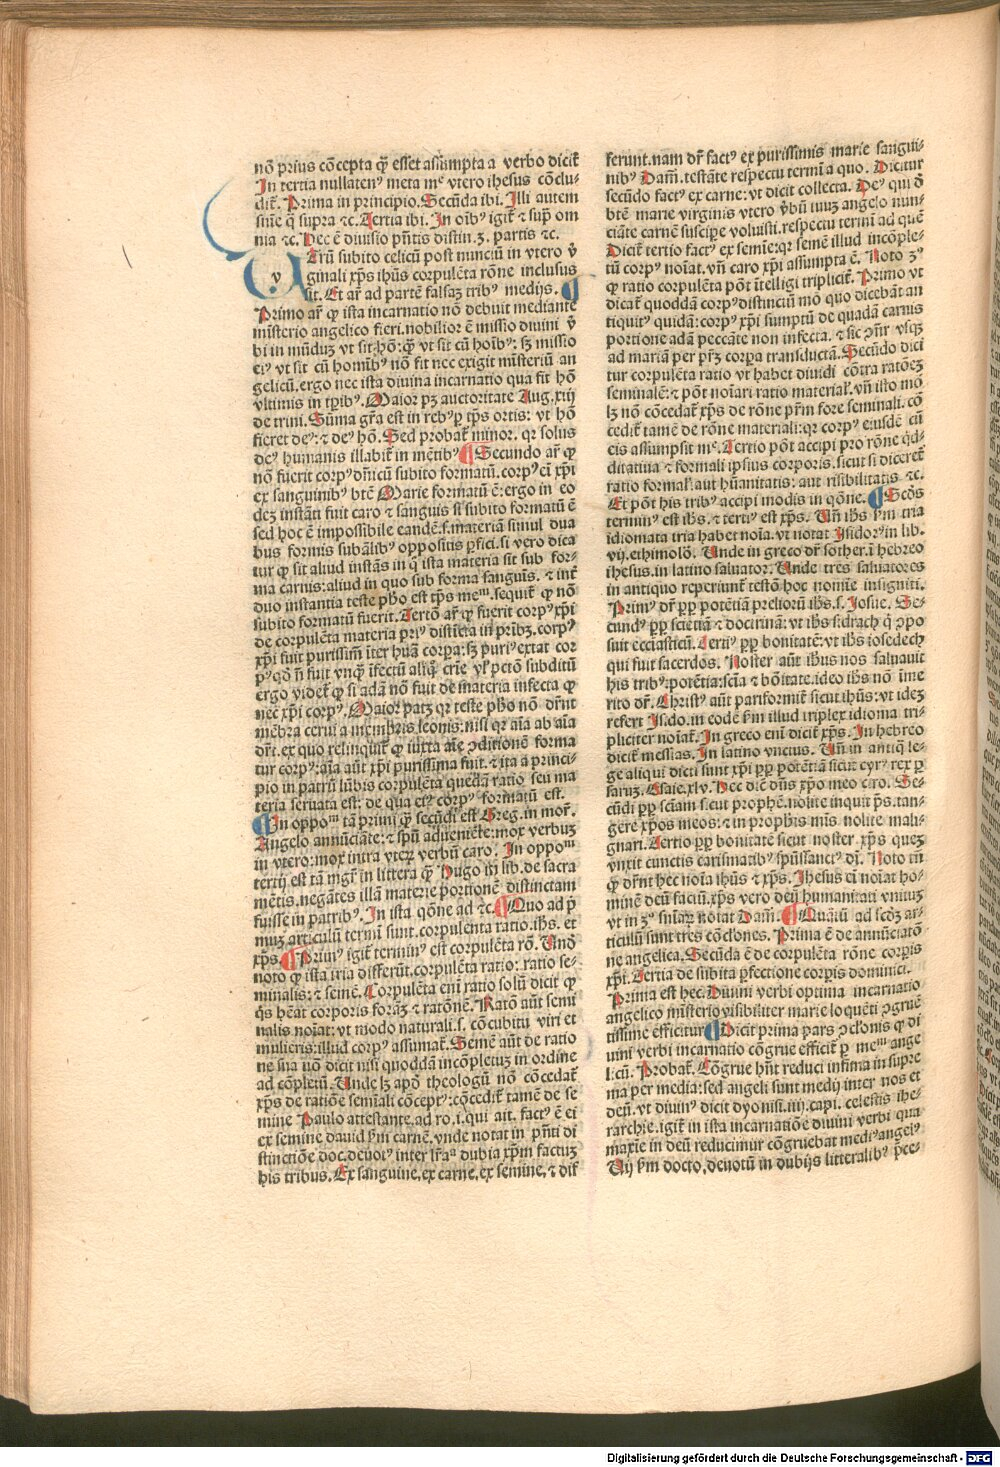 nō prius cōcepta qꝫ esset assūmpta a verbo dicit̄
In tertia nullatenꝰ meta mᵉ vtero ihesus cōclu-
dit̄. Prima in principio. Secūda ibi. Illi autem
sine q̄ supra ⁊c. Tertia ibi. In oībꝰ igit̄ ⁊ sup̄ om
nia ⁊c. Hec ē diuisio pn̄tis distin. 3. partis ⁊c.
Utrū subito celicū post nunciū in vtero v̄
ginali xp̄s ihūs corpulēta rōne inclusus
sit. Et ar̄ ad partē falsaꝫ tribꝰ medijs. ¶
Primo ar̄ ꝙ ista incarnatio nō debuit mediante
misterio angelico fieri. nobilior ē missio diuini v̄
bi in mūduꝫ vt sit hō: qꝫ vt sit cū hoībꝰ: sꝫ missio
eiꝰ vt sit cū homībꝰ nō fit nec exigit mīsteriū an
gelicū. ergo nec ista diuina incarnatio qua fit hō
vltimis in tp̄ibꝰ. Maior pꝫ auctoritate Aug. xiij
de trini. Sūma gr̄a est in rebꝰ ꝑ tp̄s ortis: vt hō
fieret deꝰ: ⁊ deꝰ hō. Sed probat̄ minor. qr solus
deꝰ humanis illabit̄ in mētibꝰ ¶ Secundo ar̄ ꝙ
nō fuerit corpꝰ dn̄icū subito formatū. corpꝰ eī xp̄i
ex sanguinibꝰ btē Marie formatū ē: ergo in eo
deꝫ instāti fuit caro ⁊ sanguis si subito formatū ē
sed hoc ē impossibile eandē. s. materiā simul dua
bus formis subālibꝰ oppositis ꝑfici. si vero dica
tur ꝙ sit aliud instās in q̄ ista materia sit sub for-
ma carnis: aliud in quo sub forma sanguis. ⁊ int̄
duo instantia teste pho est tp̄s meᵐ. sequit̄ ꝙ nō
subito formatū fuerit. Tertō ar̄ ꝙ fuerit corpꝰ xp̄i
de corpulēta materia priꝰ distīcta in pr̄ibꝫ. corpꝰ
xp̄i fuit purissim̄ īter huā corpa: sꝫ puriꝰ extat cor
pꝰ qd̄ n̄ fuit vnqꝫ īfectū aliq̄ crīe vl̓ pctō subditū
ergo videt̄ ꝙ si adā nō fuit de materia infecta ꝙ
nec xp̄i corpꝰ. Maior patꝫ qr teste pho nō dr̄nt
mēbra cerui a mēmbris leonis: nisi qr aīa ab aīa
dr̄t. ex quo relinquit̄ ꝙ iuxta aīe ꝯditionē forma
tur corpꝰ: aīa aūt xp̄i purissima fuit. ⁊ ita a princi-
pio in patrū lūbis corpulēta quedā ratio seu ma
teria seruata est: de qua eiꝰ corpꝰ formatū est.
¶ In oppoᵐ tā primi qꝫ secūdi est Greg. in mor̄.
Angelo annūciāte: ⁊ sp̄u adueniēte: mox verbuꝫ
in vtero: mox intra vterꝫ verbū caro. In oppoᵐ
tertij est tā mgr̄ in littera qꝫ Hugo in lib. de sacra
mētis. negātes illā materie portionē distinctam
fuisse in patribꝰ. In ista qōne ad ⁊c. ¶ Quo ad p̄
muꝫ articulū termi sunt. corpulenta ratio. ihs. et
xp̄s. ¶ Primꝰ igit̄ terminꝰ est corpulēta rō. Und̄
noto ꝙ ista tria differūt. corpulēta ratio: ratio se-
minalis: ⁊ semē. Corpulēta enī ratio solū dicit ꝙ
qs hēat corporis formā ⁊ ratōnē. Ratō aūt semi
nalis noīat: vt modo naturali. s. cōcubitu viri et
mulieris: illud corpꝰ assumat̄. Semē aūt de ratio
ne sua nō dicit nisi quoddā incōpletuꝫ in ordine
ad cōpletū. Unde lꝫ apd̄ theologū nō cōcedat̄
xp̄s de ratiōe semiali cōceptꝰ: cōcedit̄ tamē de se
mine Paulo attestante. ad ro. i. qui ait. factꝰ ē ei
ex semine dauid ẜm carnē. vnde notat in pn̄ti di
stinctiōe doc. deuotꝰ inter lr̄aꝭ dubia xp̄m factuꝫ
his tribus. Ex sanguine. ex carne. ex semine. ⁊ dif̄
ferunt. nam dr̄ factꝰ ex purissimis marie sangui-
nibꝰ Dam̄. testāte respectu termi a quo. Dicitur
secūdo factꝰ ex carne: vt dicit collecta. Deꝰ qui d̄
btē marie virginis vtero v̄bū tuuꝫ angelo nun-
ciāte carnē suscipe voluisti. respectu termi ad quē
Dicit̄ tertio factꝰ ex semīe: qr semē illud incōple-
tū corpꝰ noīat. vn̄ caro xp̄i assumpta ē. Noto 3ꝰ
ꝙ ratio corpulēta pōt itelligi triplicit̄. Primo vt
dicat̄ quoddā corpꝰ distinctū mō quo dicebāt an
tiquitꝰ quidā: corpꝰ xp̄i sumptū de quadā carnis
portione adā peccāte non infecta. ⁊ sic ꝯn̄r vsqꝫ
ad mariā per pr̄ꝫ corpa transductā. Secūdo dici
tur corpulēta ratio vt habet diuidi cōtra ratōeꝫ
seminalē: ⁊ pōt noiari ratio material̓. vn̄ isto mō
lꝫ nō cōcedat̄ xp̄s de rōne pr̄m fore seminali. cō
cedit̄ tamē de rōne materiali: qr corpꝰ eiusdē cū
eis assumpsit mᵉ. Tertio pōt accipi pro rōne qd̄-
ditatiua ⁊ formali ipsius corporis. sicut si diceret̄
ratio formal̓. aut hūanitatis: aut risibilitatis ⁊c.
Et pōt his tribꝰ accipi modis in qōne. ¶ Scd̄s
terminꝰ est ihs. ⁊ tertiꝰ est xp̄s. Un̄ ihs ẜm tria
idiomata tria habet noīa. vt notat Isidorꝰ in lib.
vij. ethimolō. Unde in greco dr̄ sother. ī hebreo
ihesus. in latino saluator. Unde tres saluatores
in antiquo reperiunt̄ testō hoc nomīe insigniti.
Primꝰ dr̄ ꝓp potētiā preliorū ihs. s. Iosue. Se-
cundꝰ ꝓp sciētiā ⁊ doctrinā: vt ihs sidrach q̄ ꝯpo
suit ecclasticū. Tertiꝰ ꝓp bonitatē: vt ihs iosedech
qui fuit sacerdos. Noster aūt ihus nos saluauit
his tribꝰ: potētia: scīa ⁊ bōitate. ideo ihs nō īme
rito dr̄. Christꝰ aūt pariformit̄ sicut ihūs: vt ideꝫ
refert Isido. in eodē ẜm illud triplex idioma tri-
pliciter noiat̄. In greco eni dicit̄ xp̄s. In hebreo
dicit̄ messias. In latino vnctus. Un̄ in antiq̄ le-
ge aliqui dicti sunt xp̄i ꝓp potētiā sicut cyrꝰ rex ꝑ
saruꝫ. Esaie. xlv. Hec dicē dn̄s xp̄o meo ciro. Se-
cūdi ꝓp sciam sicut prophē. nolite inquit p̄s. tan-
gere xp̄os meos: ⁊ in prophis mis nolite mali-
gnari. Tertio ꝓp bonitatē sicut noster. xp̄s queꝫ
vnxit cunctis carismatibꝰ sp̄ussanctꝰ dī. Noto tn̄
ꝙ dr̄nt hec noīa ihūs ⁊ xp̄s. Ihesus ei noīat ho-
minē deū factū. xp̄s vero deū humanitati vnituꝫ
vt in 3ꝰ sniaꝝ notat Dam̄. ¶ Quātū ad scdꝫ ar-
ticulū sunt tres cōclones. Prima ē de annūciatōe
ne angelica. Secūda ē de corpulēta rōne corpis
xp̄i. Tertia de subita ꝑfectione corpis dominici.
Prima est hec. Diuini verbi optima incarnatio
angelico misterio visibiliter marie loquēti ꝯgruē
tissime efficitur ¶ Dicit prima pars ꝯclonis ꝙ di
uini verbi incarnatio cōgrue efficit̄ ꝑ meᵐ ange
licū. Probat̄. Cōgrue hn̄t reduci infima in supre
ma per media: sed angeli sunt medij inter nos et
deū. vt diuinꝰ dicit dyonisi. iiij. capi. celestis ihe-
rarchie. igit̄ in ista incarnatiōe diuini verbi qua
maxīe in deū reducimur cōgruebat mediꝰ angelꝰ
Uij ẜm docto. deuotū in dubijs litteralibꝰ p̄ce-
Digitalisierung gefördert durch die Deutsche Forschungsgemeinschaft - DFG